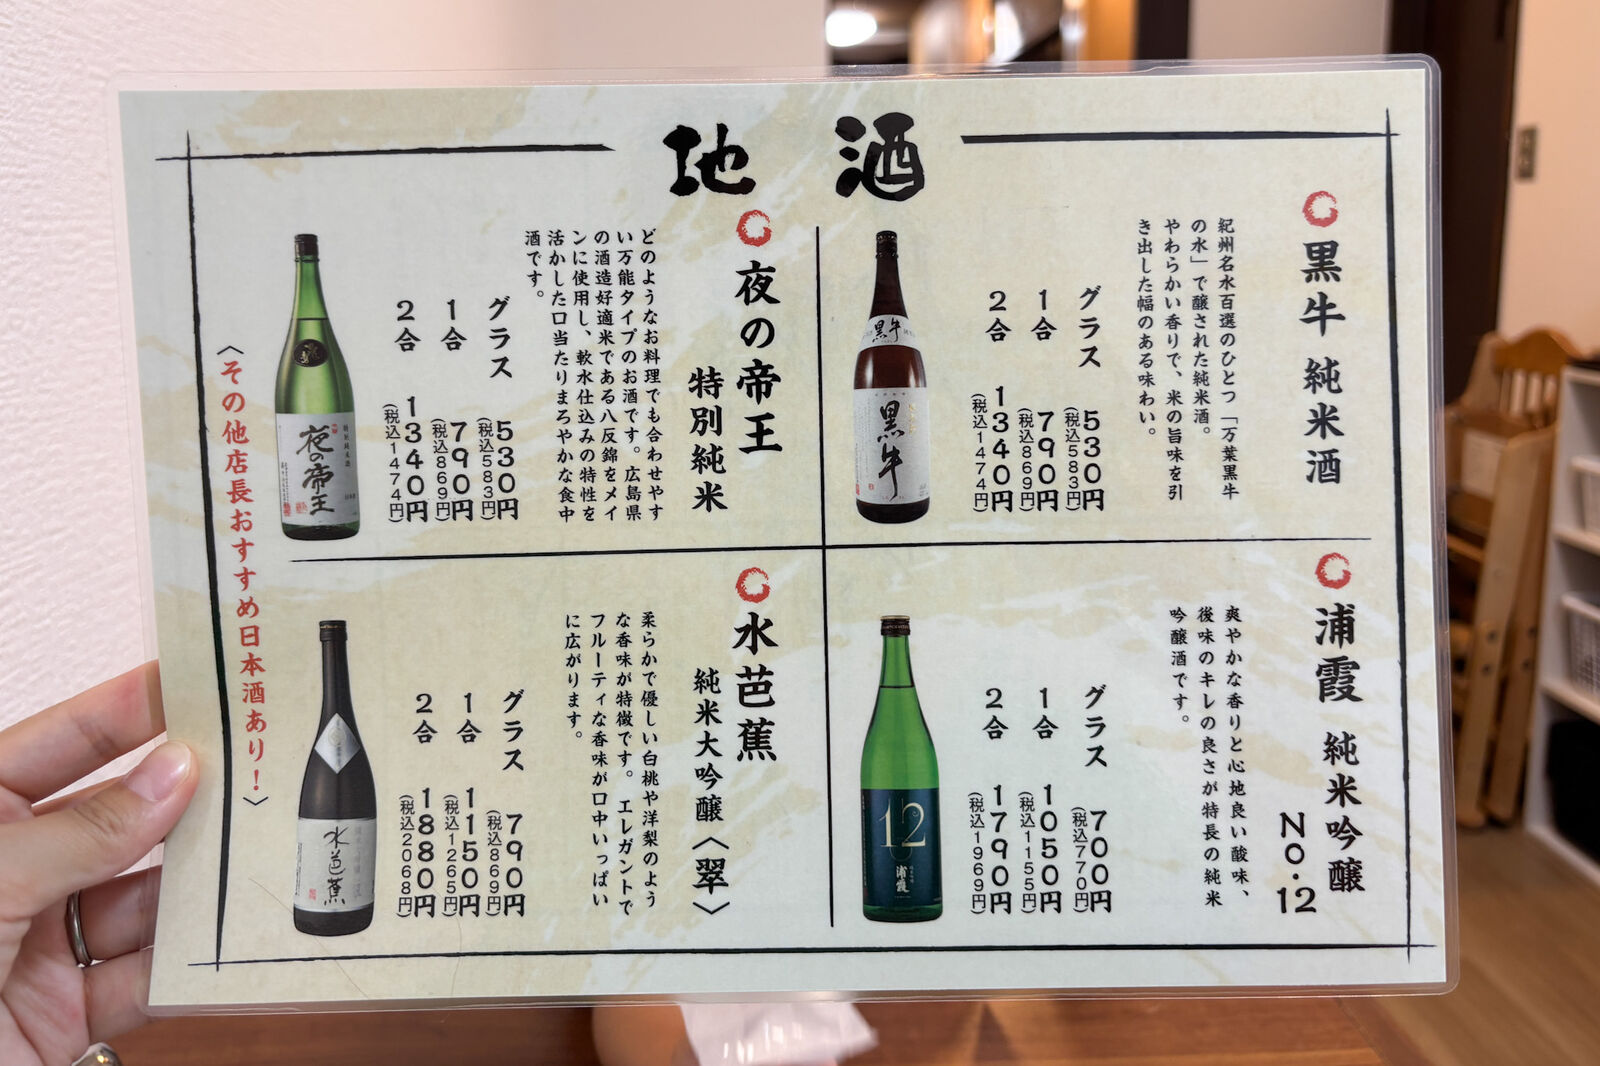 地酒
黒牛 純米酒
紀州名水百選のひとつ「万葉黒牛
の水」で醸された純米酒。
やわらかい香りで、米の旨味を引
き出した幅のある味わい。
グラス 530円
(税込583円)
1合 790円
(税込869円)
2合 1340円
(税込1474円)
黒牛
黒牛
夜の帝王
特別純米
どのようなお料理でも合わせやす
い万能タイプのお酒です。広島県
の酒造好適米である八反錦をメイ
ンに使用し、軟水仕込みの特性を
活かした口当たりまろやかな食中
酒です。
グラス 530円
(税込583円)
1合 790円
(税込869円)
2合 1340円
(税込1474円)
特別純米酒
夜の帝王
浦霞 純米吟醸
No.12
爽やかな香りと心地良い酸味、
後味のキレの良さが特長の純米
吟醸酒です。
グラス 700円
(税込770円)
1合 1050円
(税込1155円)
2合 1790円
(税込1969円)
12
浦霞
水芭蕉
純米大吟醸〈翠〉
柔らかで優しい白桃や洋梨のよう
な香味が特徴です。エレガントで
フルーティな香味が口中いっぱい
に広がります。
グラス 790円
(税込869円)
1合 1150円
(税込1265円)
2合 1880円
(税込2068円)
水芭蕉
〈その他店長おすすめ日本酒あり!〉